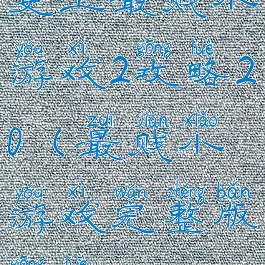 yóu xì gōng lüè
游戏2攻略2
zuì jiàn xiǎo
0(最贱小
yóu xì wán zhěng bǎn
游戏完整版
gōng lüè